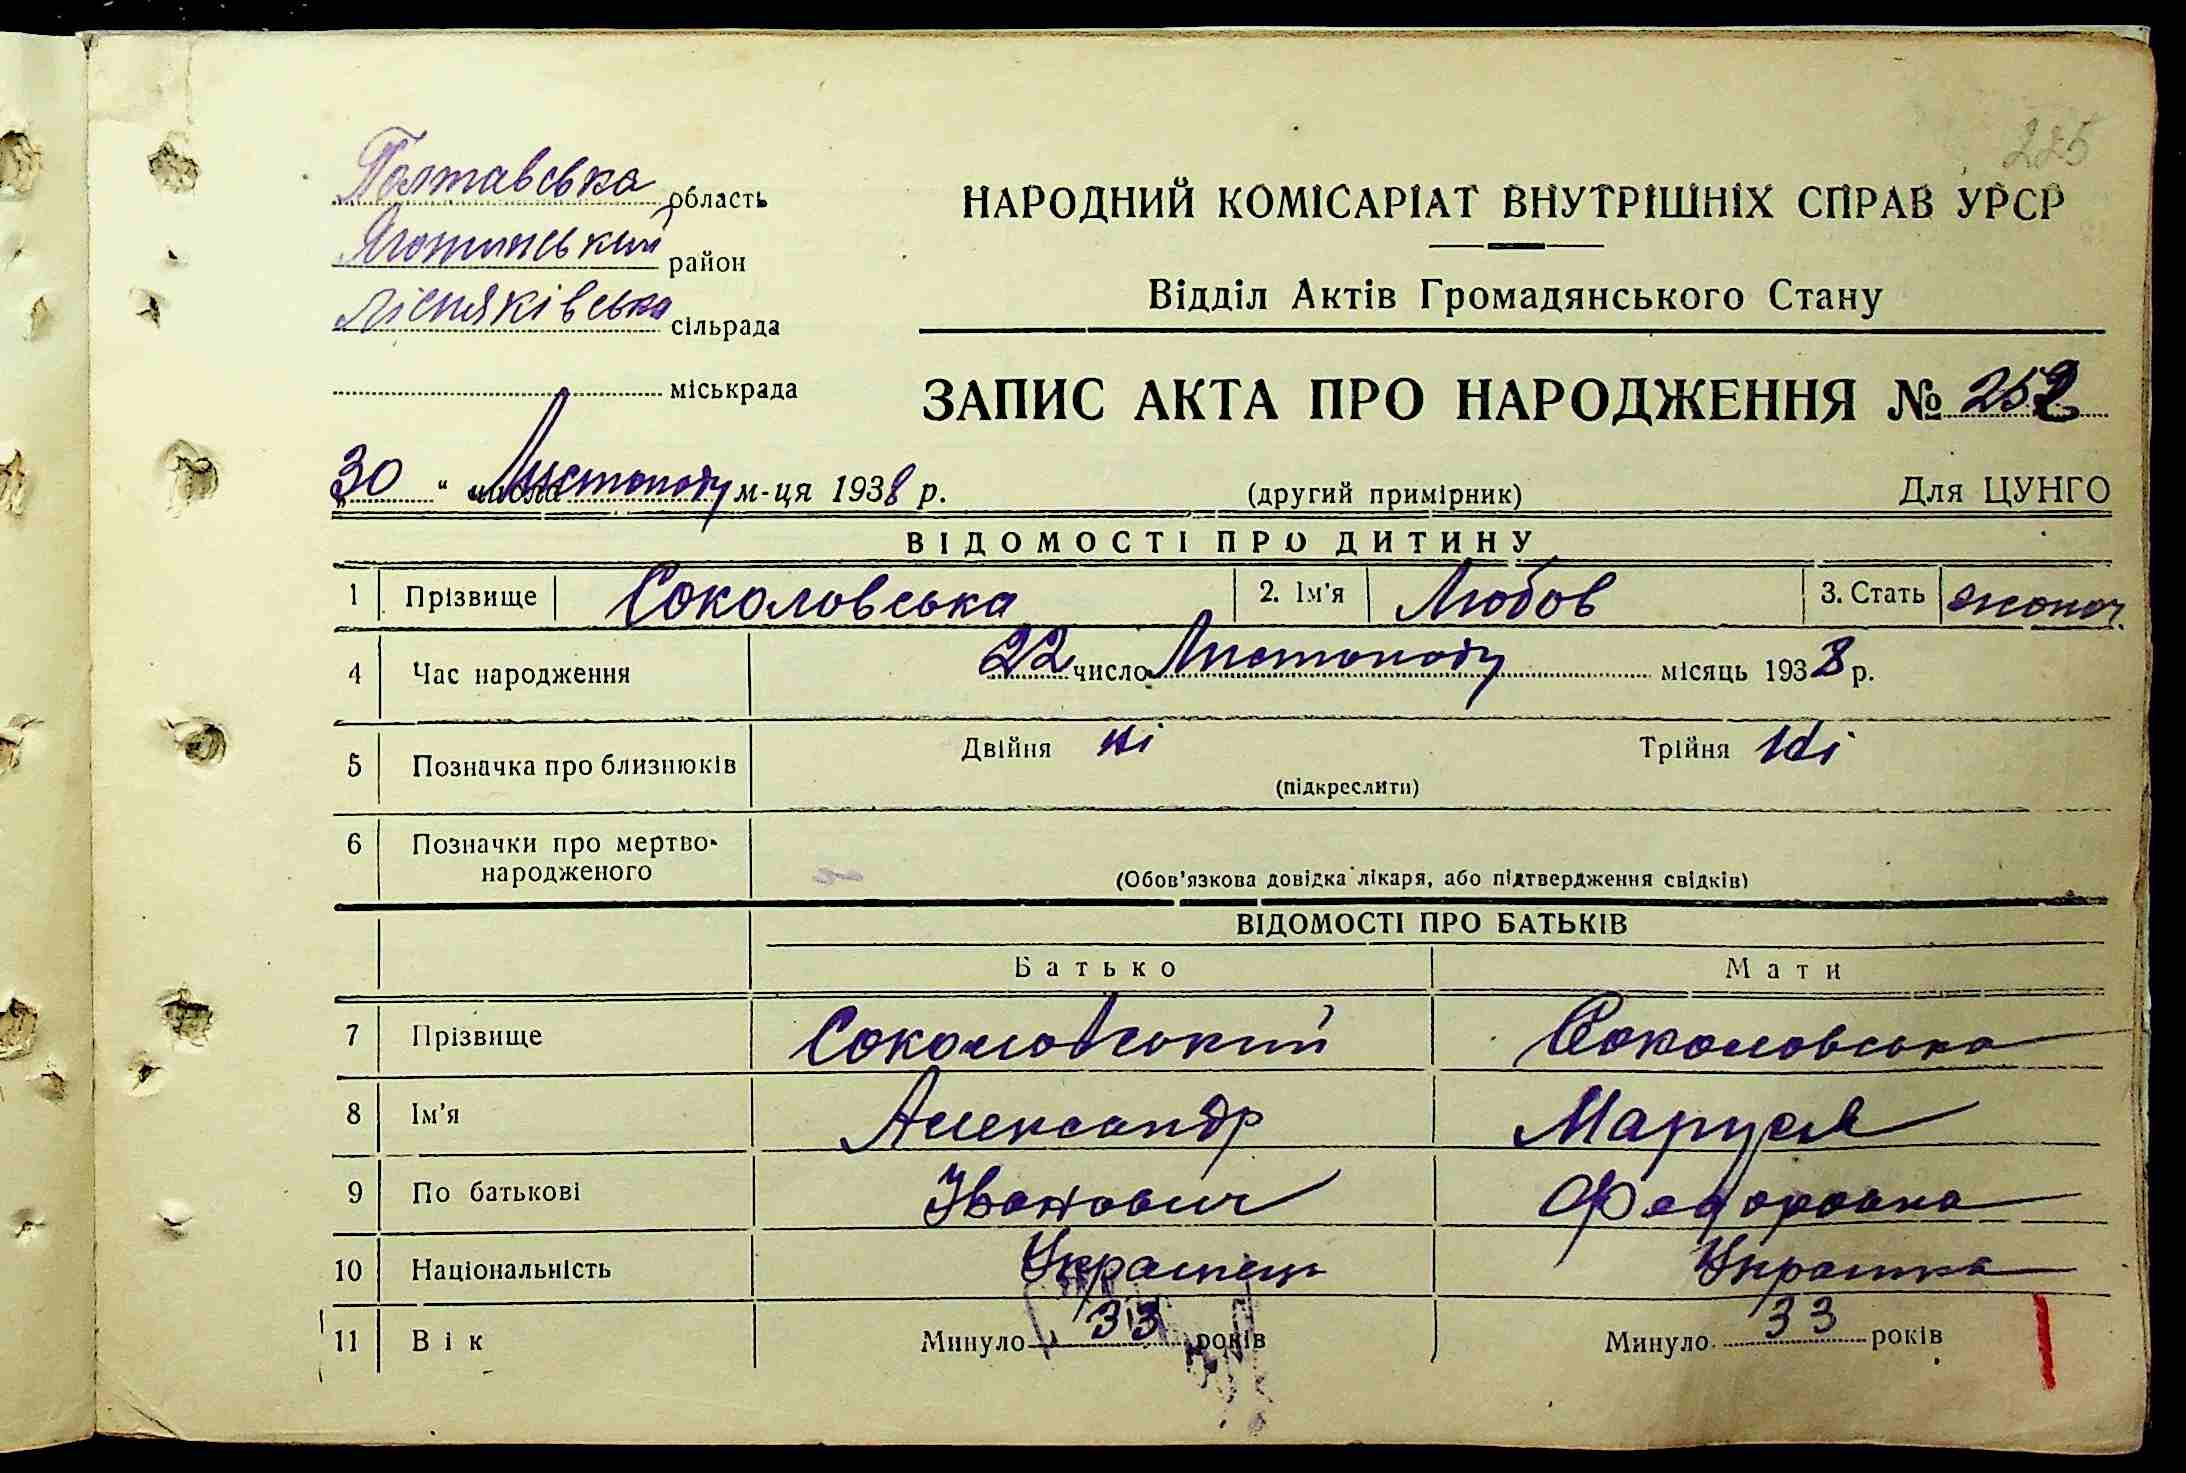 225
Полтавська область
Яготинський район
Лісняківська сільрада
міськрада
НАРОДНИЙ КОМІСАРІАТ ВНУТРІШНІХ СПРАВ УРСР
Відділ Актів Громадянського Стану
ЗАПИС АКТА ПРО НАРОДЖЕННЯ № 252
„30" числа Листопаду м-ця 1938 р. (другий примірник) Для ЦУНГО
ВІДОМОСТІ ПРО ДИТИНУ
1 Прізвище Соколовська 2. Ім'я Любов 3. Стать жоноч.
4 Час народження 22 число Листопаду місяць 1938 р.
5 Позначка про близнюків Двійня ні Трійня ні
(підкреслити)
6 Позначки про мертво-
народженого
(Обов'язкова довідка лікаря, або підтвердження свідків)
ВІДОМОСТІ ПРО БАТЬКІВ
Батько Мати
7 Прізвище Соколовський Соколовська
8 Ім'я Александр Маруся
9 По батькові Іванович Федоровна
10 Національність Украінець Украінка
11 Вік Минуло 33 років Минуло 33 років